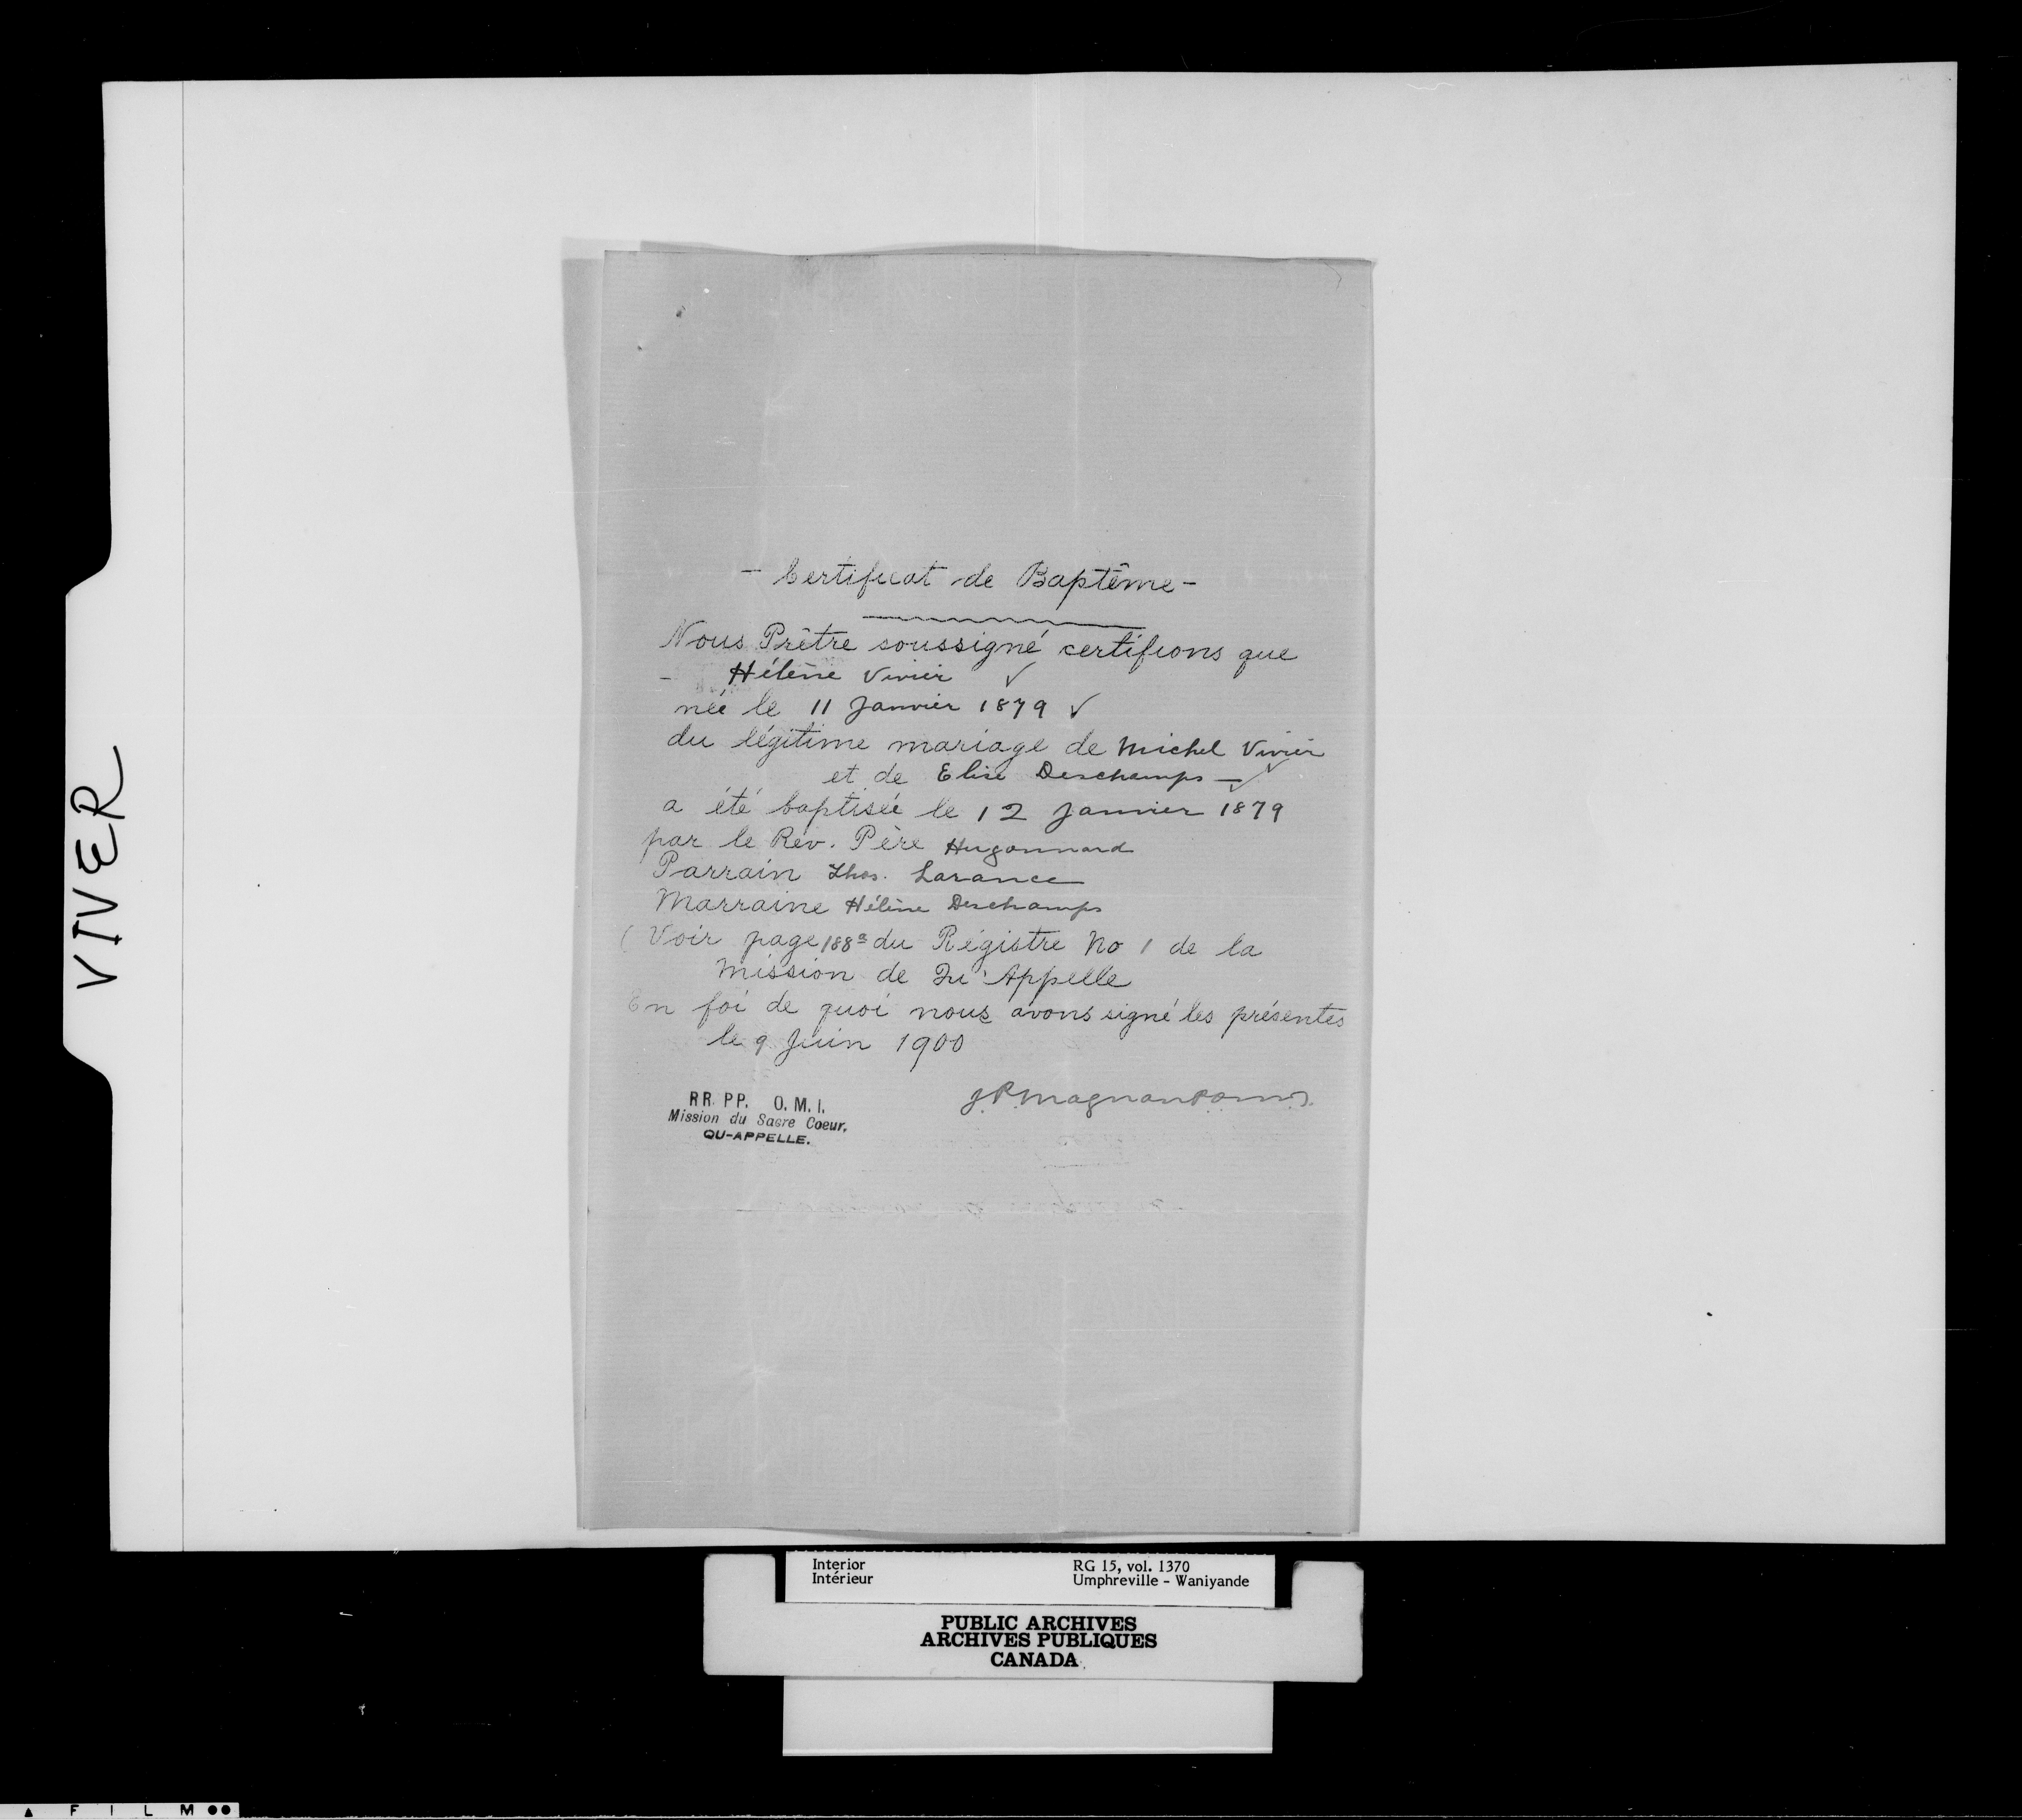 - Certificat de Baptême -
Nous Prêtre soussigné certifions que
- Hélène Vivier ✓
née le 11 Janvier 1879 ✓
du légitime mariage de Michel Vivier
et de Elise Deschamps - ✓
a été baptisée le 12 Janvier 1879
par le Rév. Père Hugonnard
Parrain Thos. Larance
Marraine Hélène Deschamps
( Voir page 188ª du Régistre No 1 de la
Mission de Qu'Appelle
En foi de quoi nous avons signé les présentes
le 9 Juin 1900
J.P. Magnan P.O.M.I.
RR. PP. O. M. I.
Mission du Sacre Coeur,
QU-APPELLE.
VIVER
Interior RG 15, vol. 1370
Intérieur Umphreville - Waniyande
PUBLIC ARCHIVES
ARCHIVES PUBLIQUES
CANADA
FILM